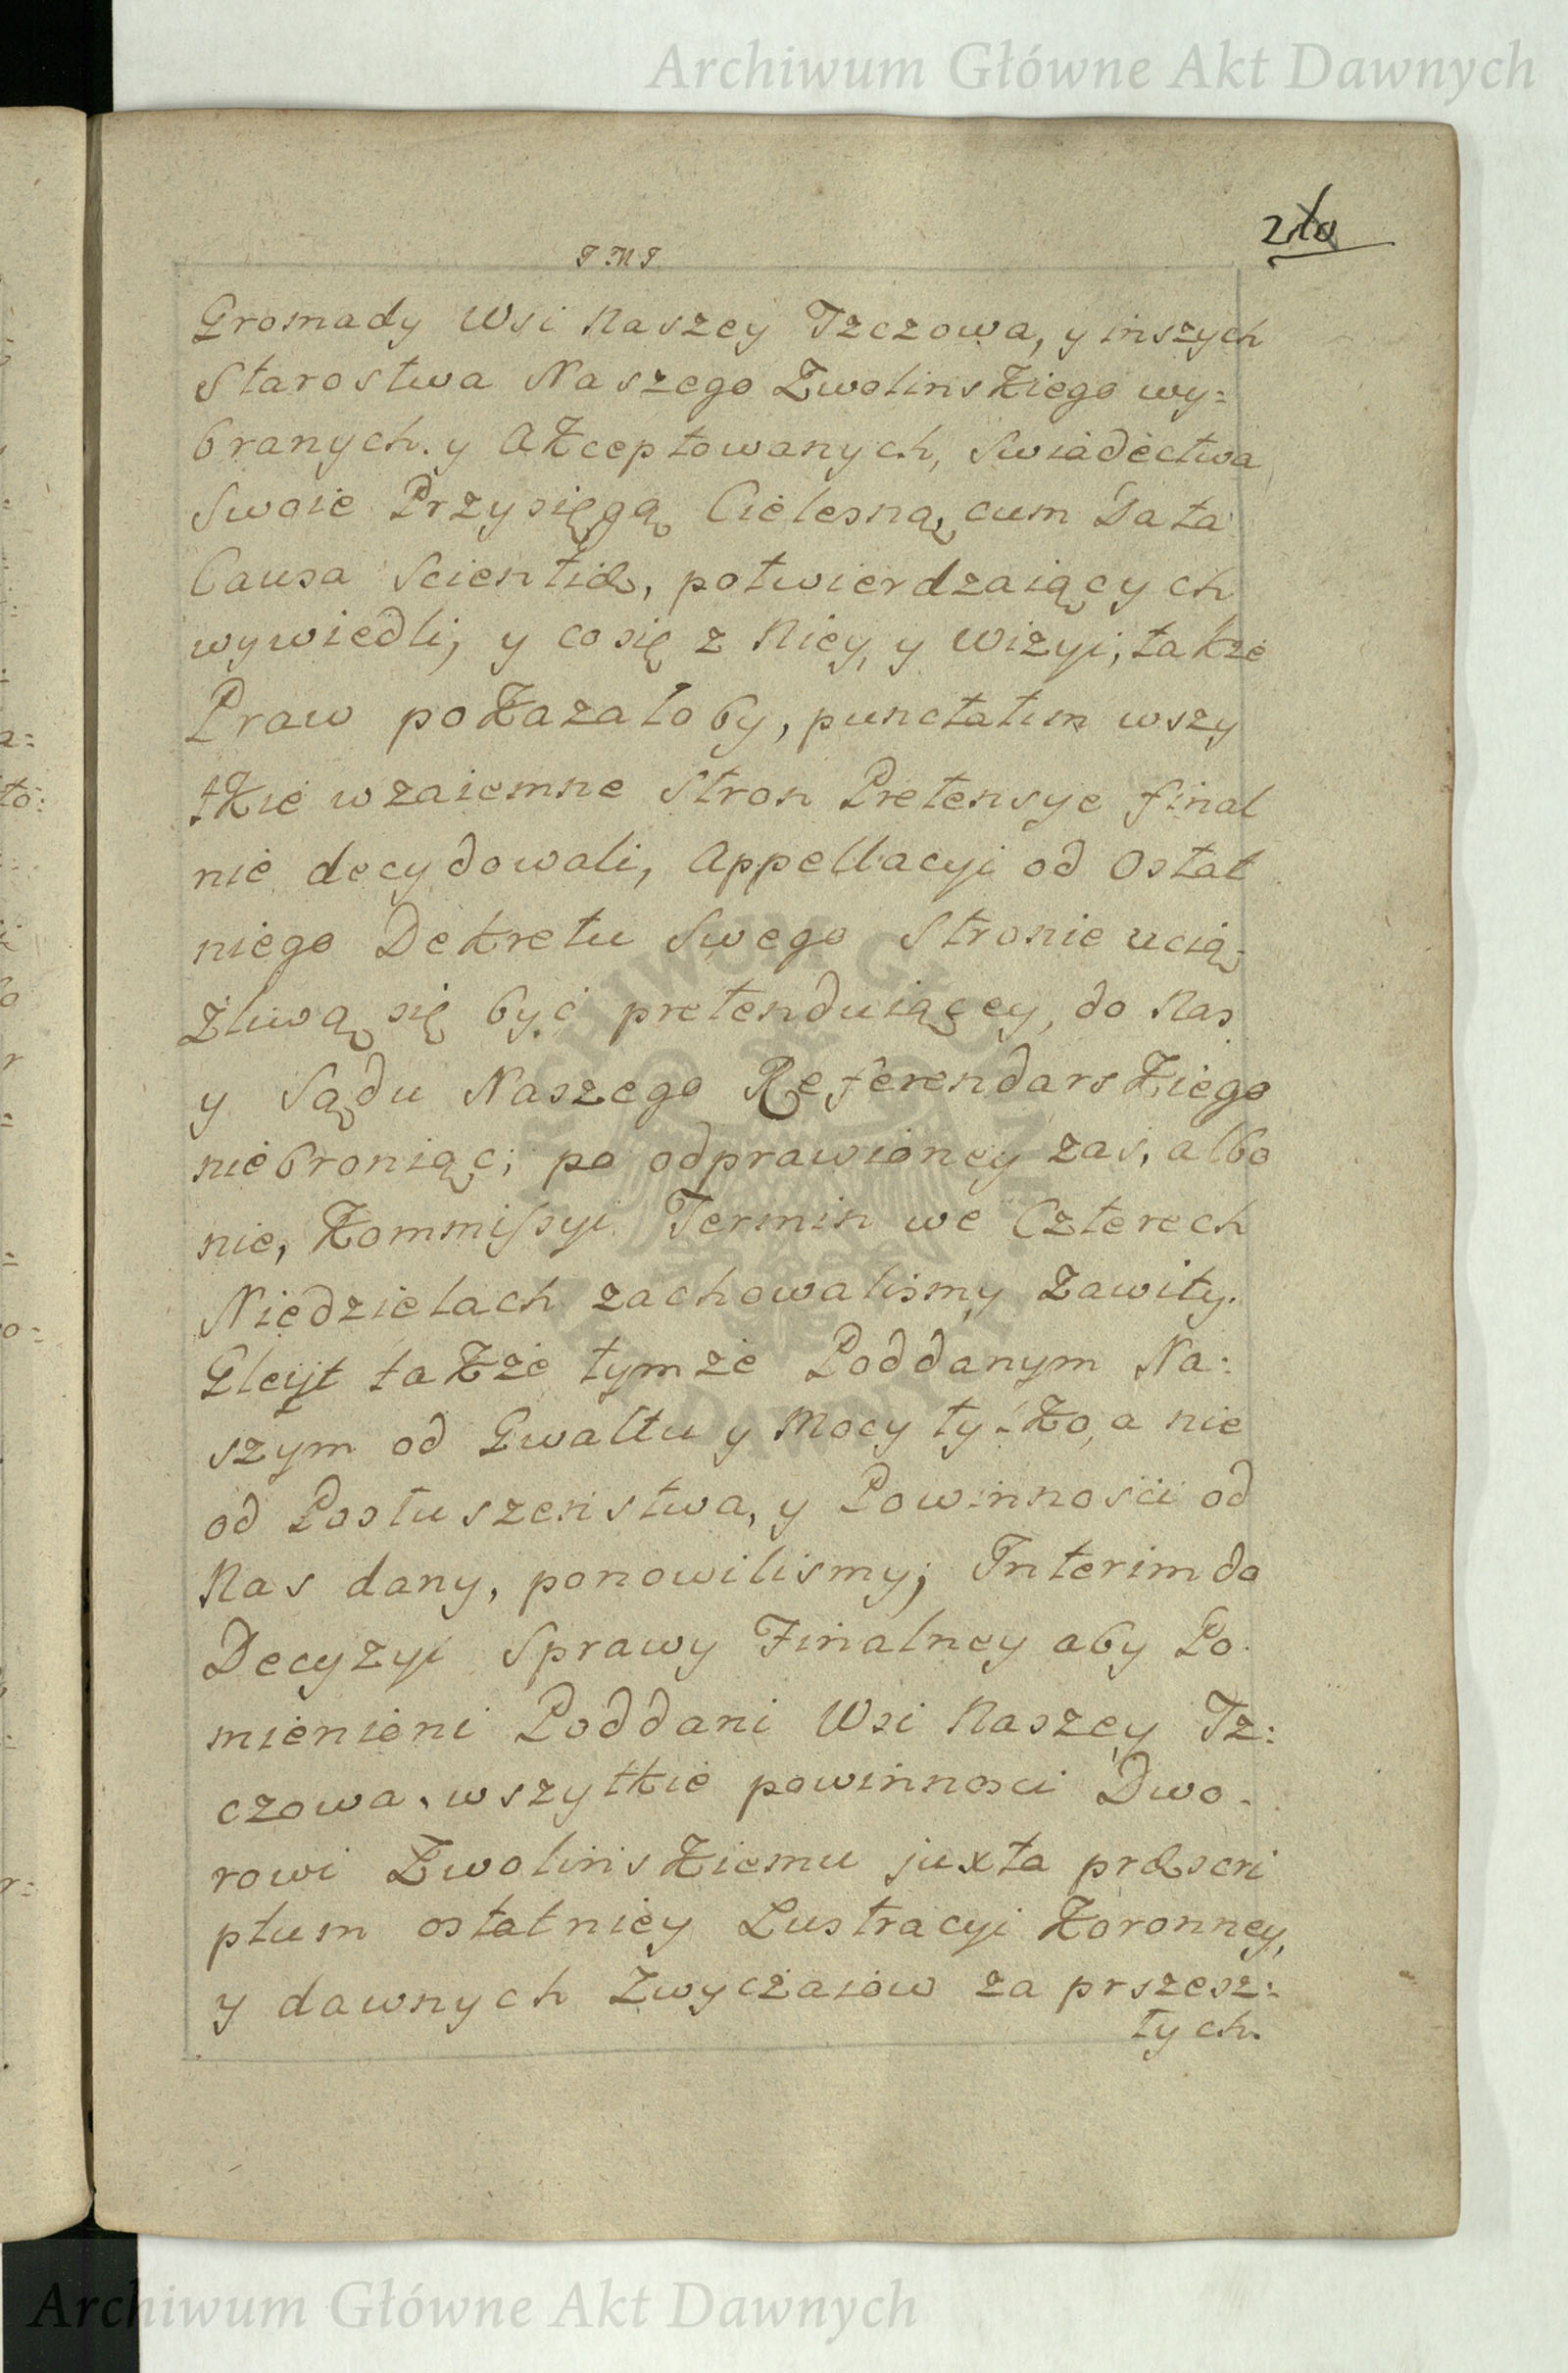 Archiwum Główne Akt Dawnych
J M J
Gromady Wsi Naszey Tzczowa, y inszych
Starostwa Naszego Zwolinskiego wy=
branych. y akceptowanych, Swiadectwa
Swoie Przysięgą Cielesną, cum Data
Causa Scientiæ, potwierdzaiących
wywiedli; y co się z Niey, y Wizyi, także
Praw pokazałoby, punctatim wszy
tkie wzaiemne Stron Pretensye final
nie decydowali, Appellacyi od Ostat
niego Dekretu Swego Stronie ucią=
żliwą się być pretenduiącey, do Nas
y Sądu Naszego Referendarskiego
niebroniąc; po odprawioney zaś, albo
nie, Kommissyi Termin we Czterech
Niedzielach zachowalismy Zawity.
Gleyt także tymże Poddanym Na=
szym od Gwałtu y Mocy tylko, a nie
od Posłuszeństwa, y Powinnosci od
Nas dany, ponowilismy; Interim do
Decyzyi Sprawy Finalney aby Po=
mienieni Poddani Wsi Naszey Tz=
czowa, wszytkie powinnosci Dwo=
rowi Zwolinskiemu juxta præscri
ptum ostatniey Lustracyi Koronney,
y dawnych Zwyczaiow za przesz=
łych.
ARCHIWUM GŁÓWNE AKT DAWNYCH
Archiwum Główne Akt Dawnych